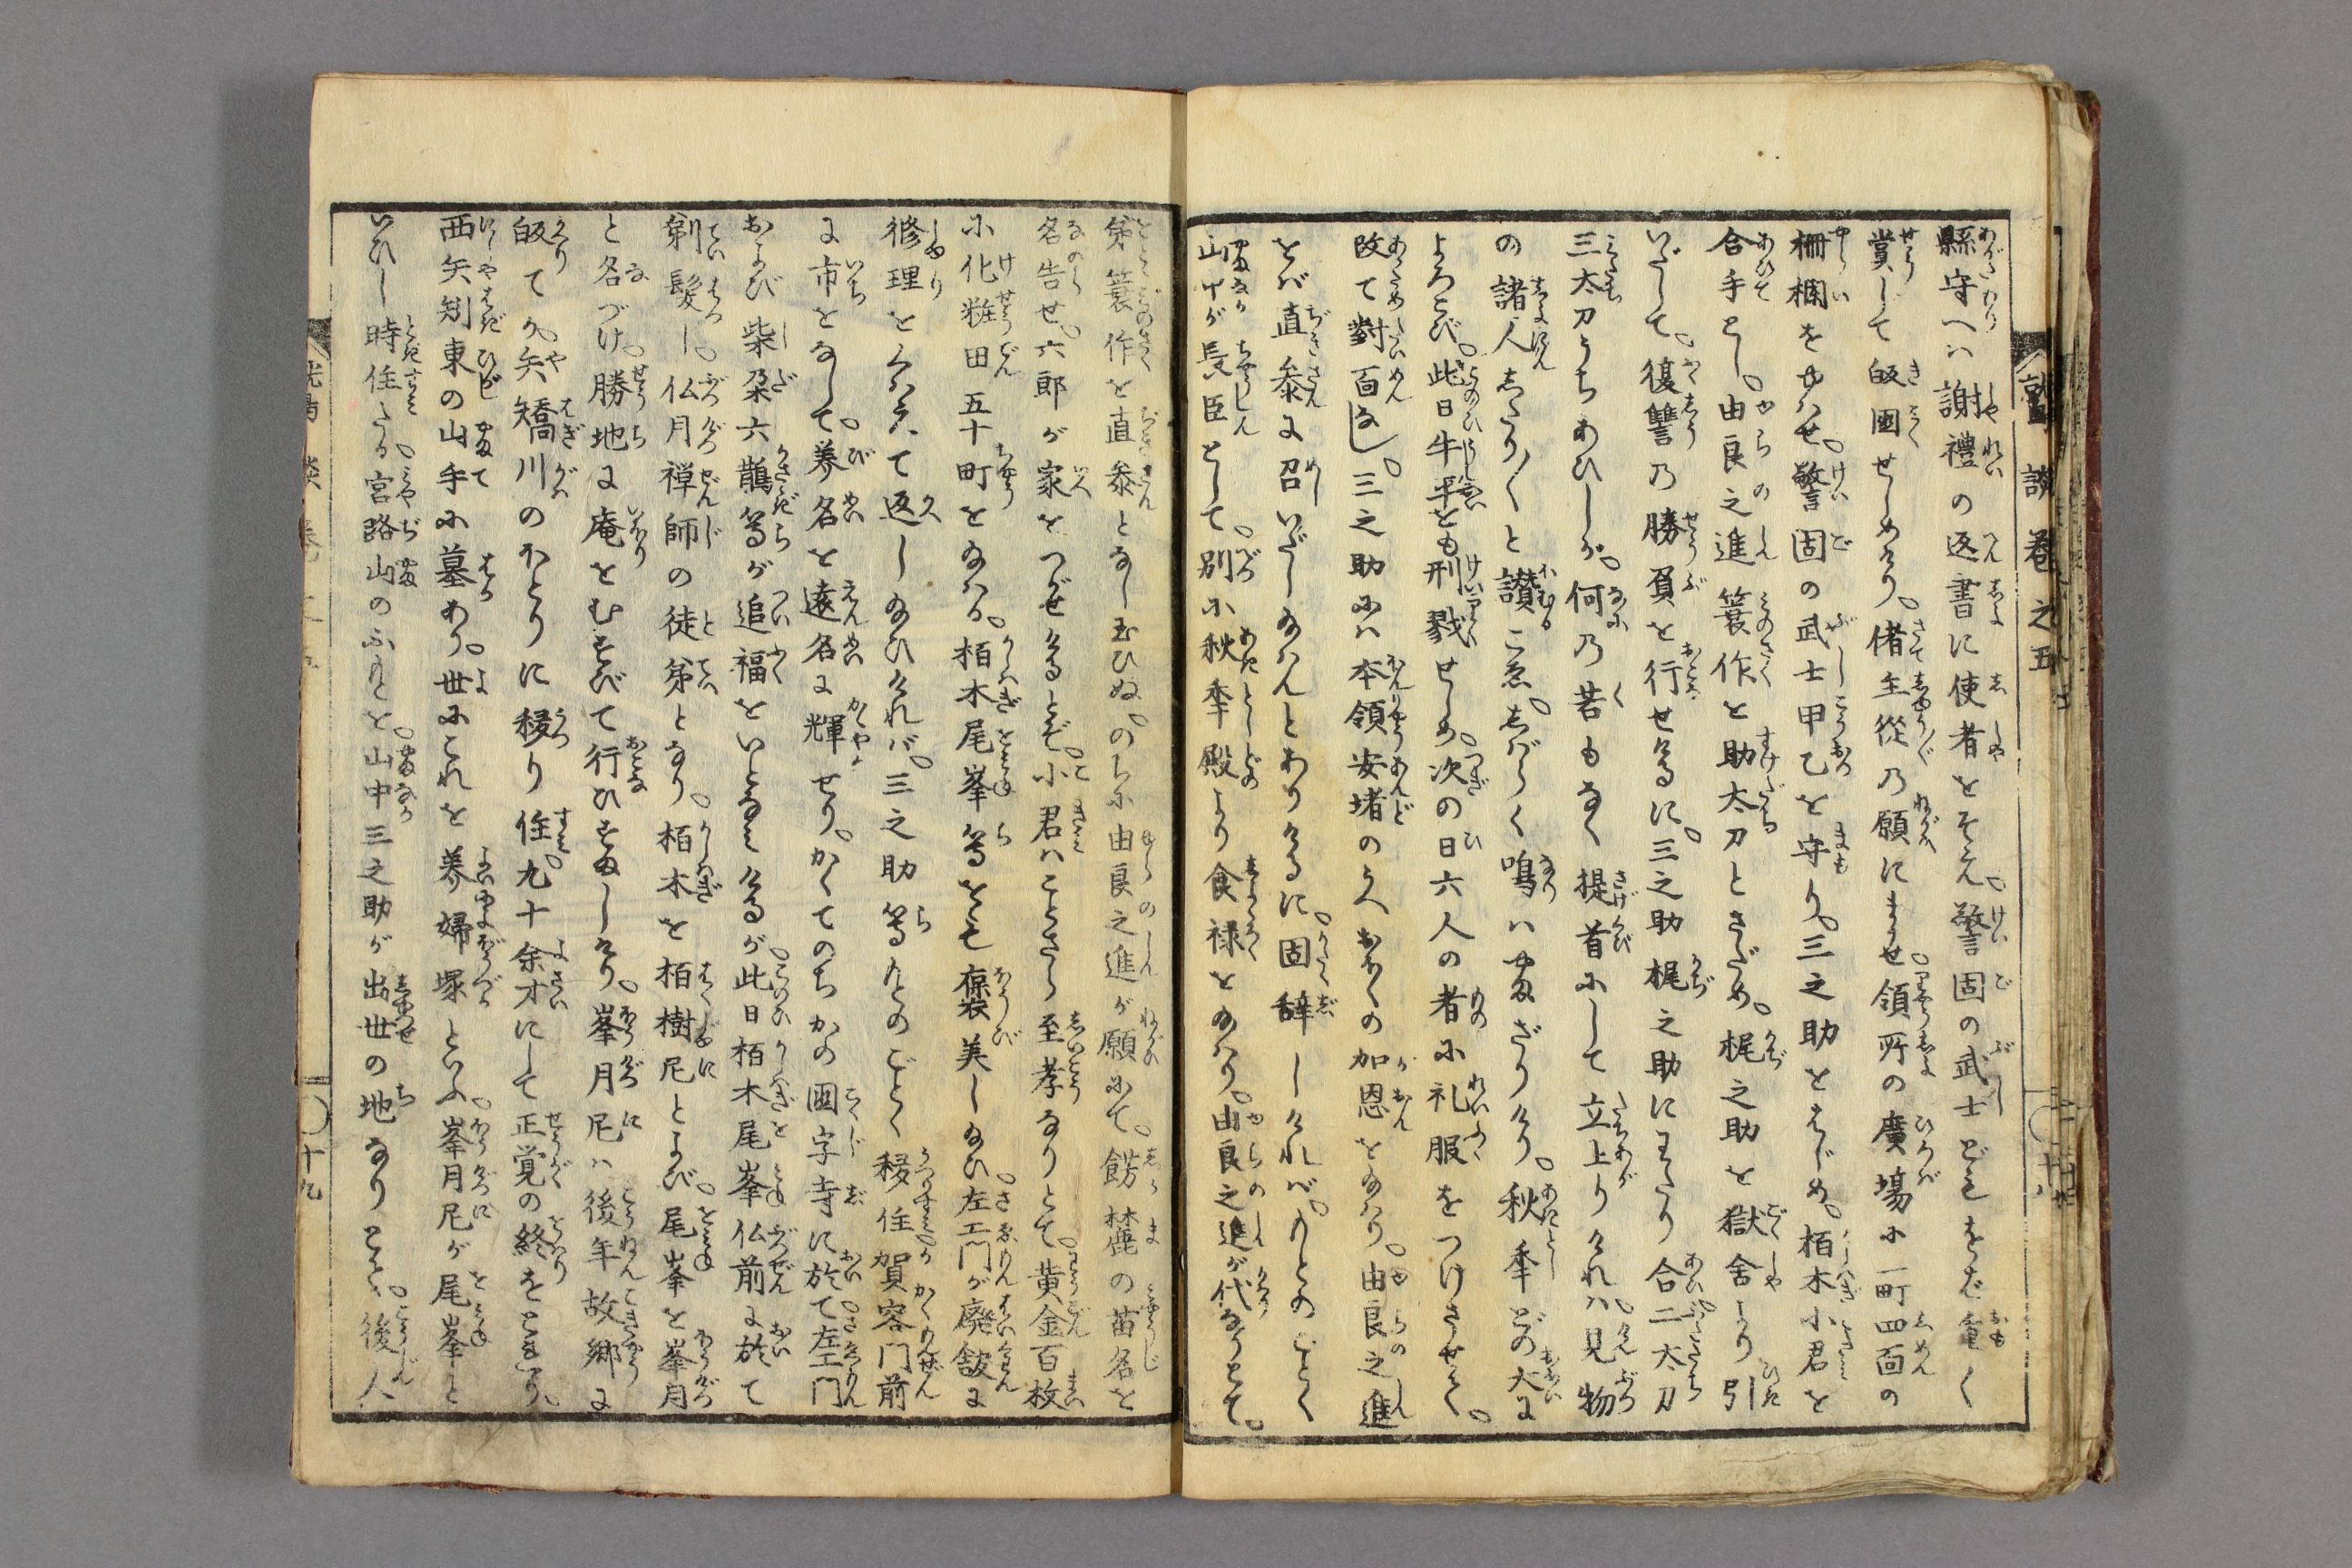 縣守へハ謝禮の返書に使者をそえ。警固の武士どもをさだ重く
賞して皈國せしめけり。偖主從乃願にまかせ領所の廣場に一町四面の
柵欄をゆハせ。警固の武士甲乙を守り。三之助をはじめ。栢木小君を
合手とし。由良之進簑作を助太刀とさだめ。梶之助を獄舎より引
いだして。復讐乃勝負を行せけるに。三之助梶之助にわたり合二太刀
三太刀うちあひしが。何乃苦もなく提首にして立上りけれハ。見物
の諸人したり／＼と讃こゑ。しばらく鳴ハやまざりけり。秋季どの大に
よろこび。此日牛平をも刑戮せしめ。次の日六人の者に礼服をつけさせて。
改て對面なし。三之助にハ本領安堵のうへおほくの加恩を給ハり。由良之進
をバ直参に召いだし給ハんとありけるに。固辞しけれバ。もとのごとく
山中が長臣として。別に秋季殿より食禄を給ハり。由良之進が代なりとて。
弟簑作を直参となし玉ひぬ。のちに由良之進が願にて。餝麓の苗名を
名告せ。六郎が家をつがせけるとぞ。小君ハことさら至孝なりとて。黄金百枚
に化粧田五十町を給ハる。栢木尾峯等をも褒美し給ひ。左エ門が廢館に
修理をくわへて返し給ひけれバ。三之助等もとのごとく移住。賀客門前
に市をなして。養名を遠名に輝せり。かくてのちかの國字寺に於て。左エ門
および柴朶六鵲等が追福をいとなミけるが。此日栢木尾峯仏前に於て
剃髪し。仏月禅師の徒弟となり。栢木を栢樹尼とよび。尾峯を峯月
と名づけ。勝地に庵をむすびて行ひすましけり。峯月尼ハ後年故郷に
皈てか。矢矯川のほとりに移り住。九十余才にして正覚の終をとれり。
西矢矧東の山手に墓あり。世にこれを養婦塚といふ。峯月尼が尾峯と
いひし時住たる宮路山のふもとを。山中三之助が出世の地なりとて。後人